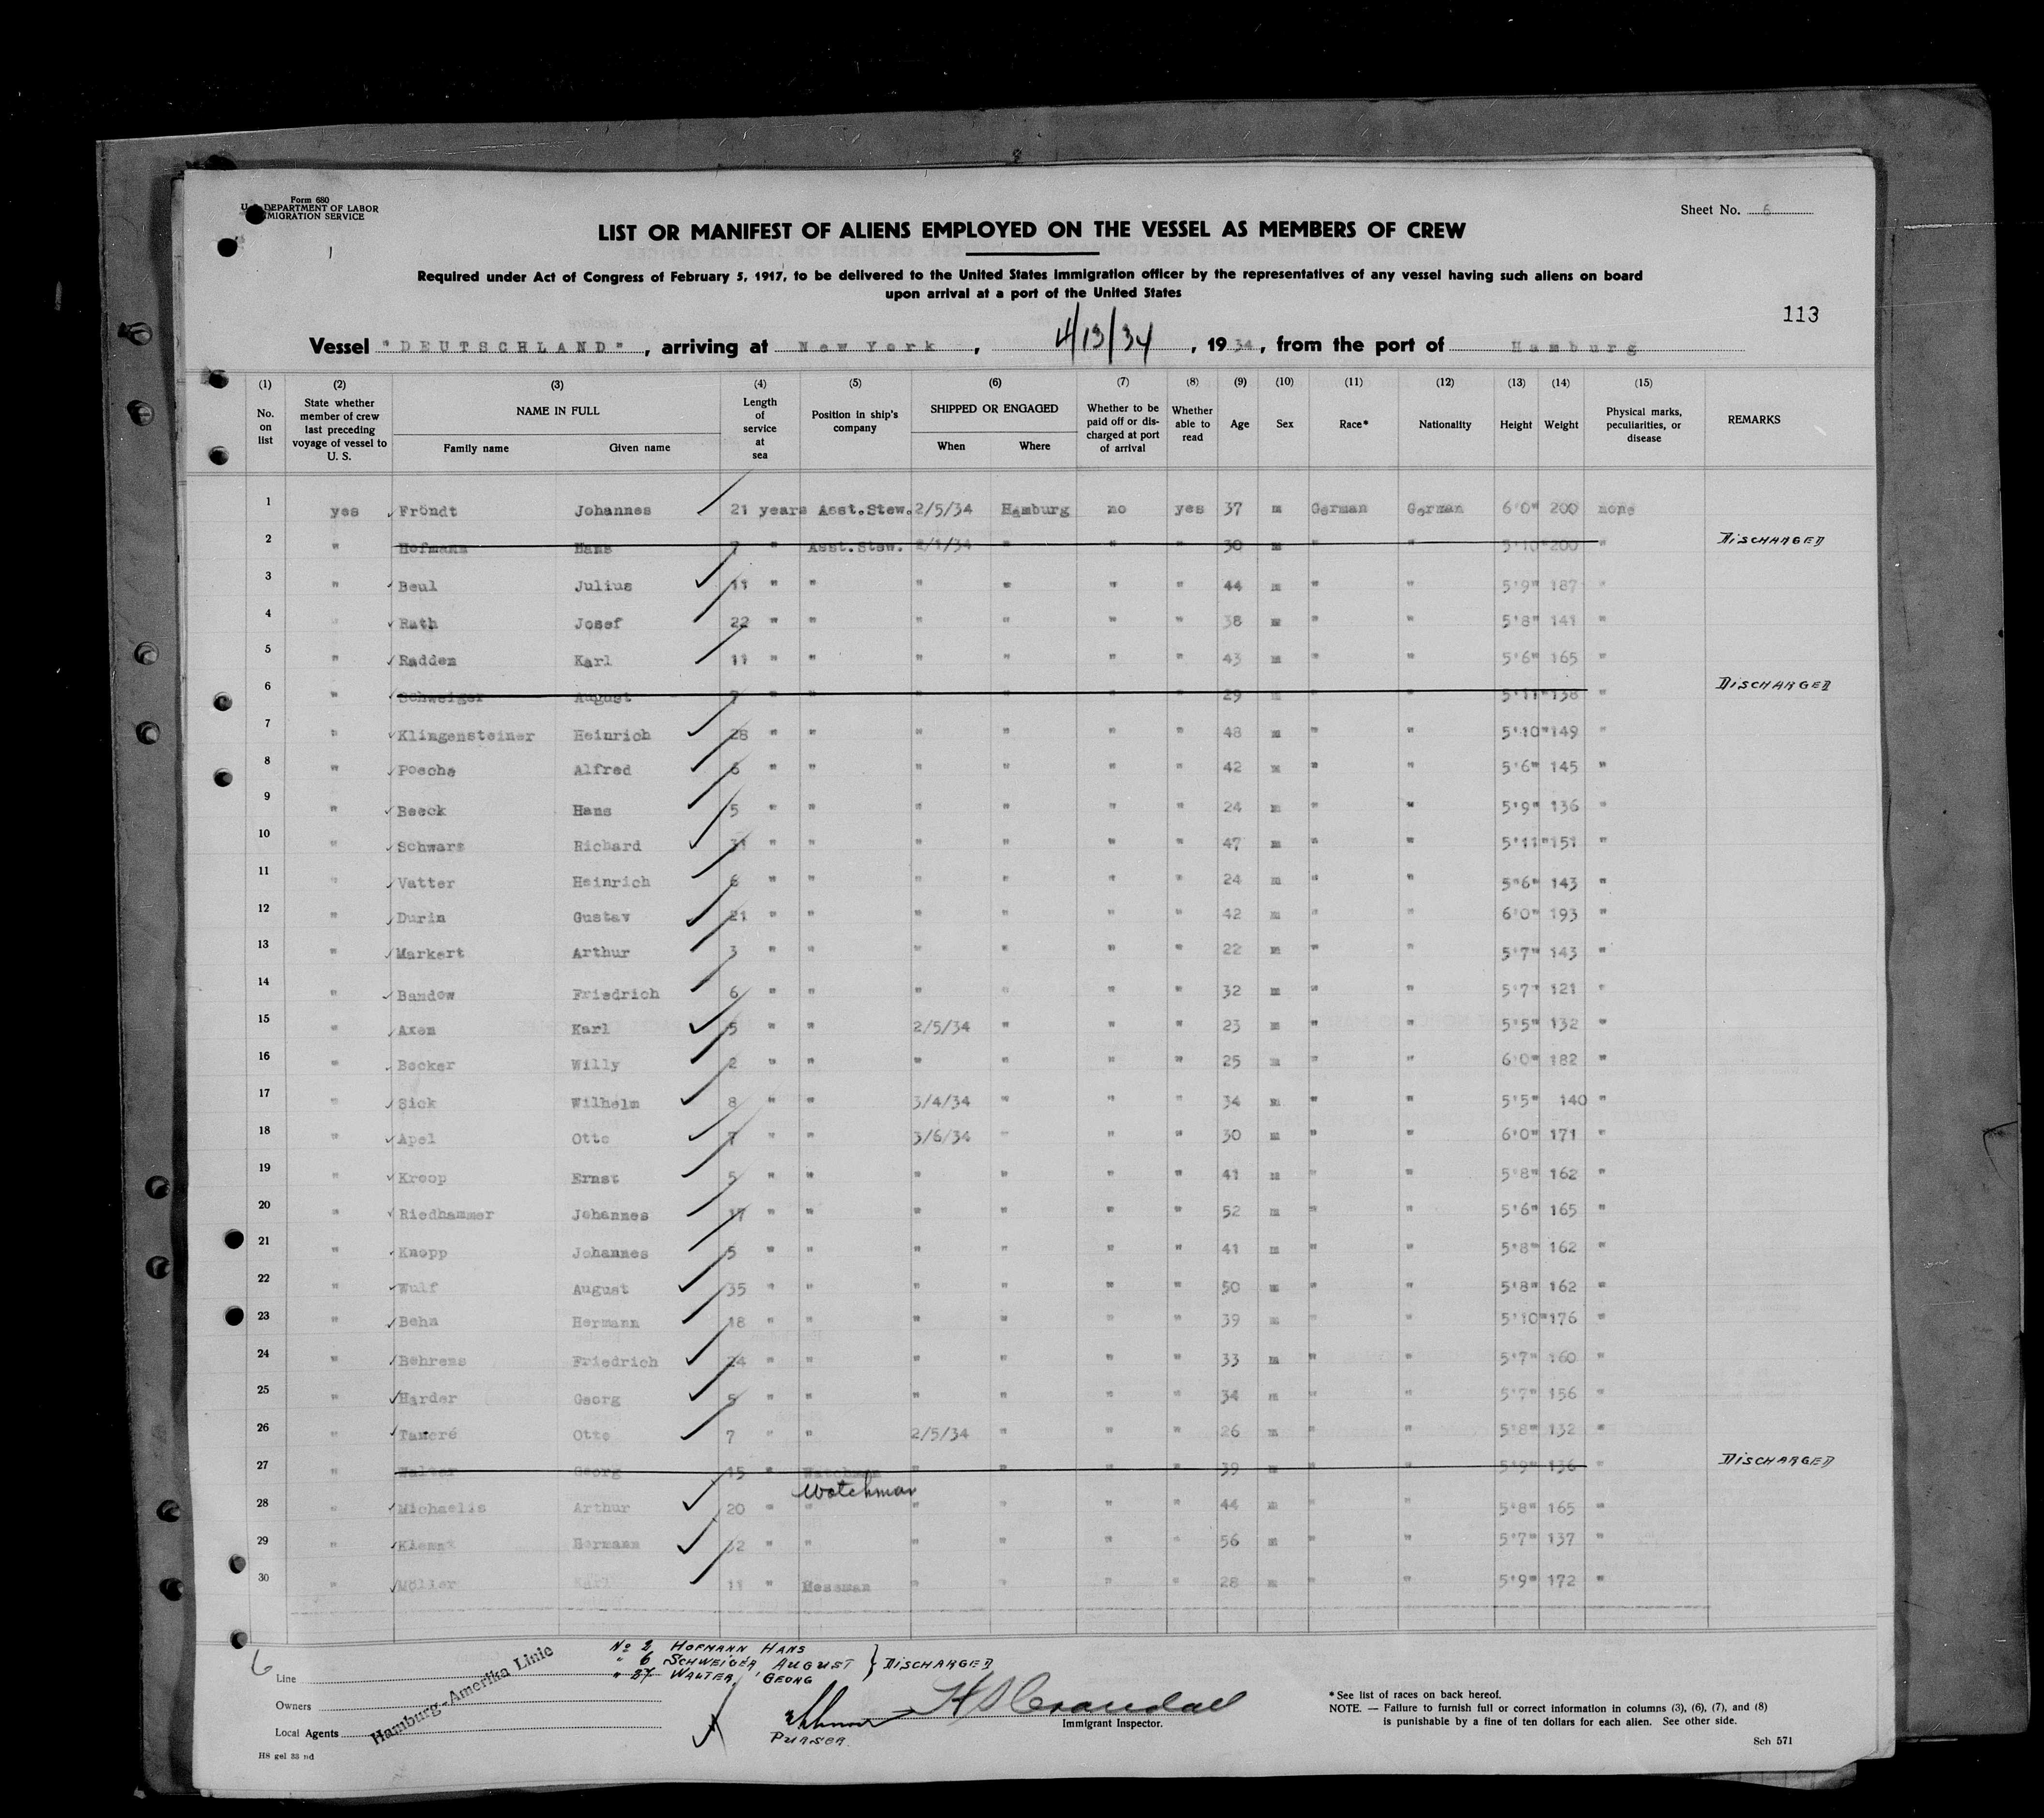 Form 680
U. S. DEPARTMENT OF LABOR
IMMIGRATION SERVICE
Sheet No. 6
LIST OR MANIFEST OF ALIENS EMPLOYED ON THE VESSEL AS MEMBERS OF CREW
Required under Act of Congress of February 5, 1917, to be delivered to the United States immigration officer by the representatives of any vessel having such aliens on board
upon arrival at a port of the United States
113
Vessel "DEUTSCHLAND", arriving at New York, 4/13/34, 1934, from the port of Hamburg
(1) (2) (3) (4) (5) (6) (7) (8) (9) (10) (11) (12) (13) (14) (15)
No. on list State whether member of crew last preceding voyage of vessel to U. S. NAME IN FULL Family name Given name Length of service at sea Position in ship's company SHIPPED OR ENGAGED When Where Whether to be paid off or discharged at port of arrival Whether able to read Age Sex Race* Nationality Height Weight Physical marks, peculiarities, or disease REMARKS
1 yes Fröndt Johannes 21 years Asst.Stew. 2/5/34 Hamburg no yes 37 m German German 6'0" 200 none
2 " Hofmann Hans 7 " Asst.Stew. 2/1/34 " " " 30 m " " 5'10" 200 " DISCHARGED
3 " Beul Julius 11 " " " " " " 44 m " " 5'9" 187 "
4 " Rath Josef 22 " " " " " " 38 m " " 5'8" 141 "
5 " Radden Karl 11 " " " " " " 43 m " " 5'6" 165 "
6 " Schweiger August 7 " " " " " " 29 m " " 5'11" 138 " DISCHARGED
7 " Klingensteiner Heinrich 28 " " " " " " 48 m " " 5'10" 149 "
8 " Poeche Alfred 6 " " " " " " 42 m " " 5'6" 145 "
9 " Beeck Hans 5 " " " " " " 24 m " " 5'9" 136 "
10 " Schwarz Richard 31 " " " " " " 47 m " " 5'11" 151 "
11 " Vatter Heinrich 6 " " " " " " 24 m " " 5"6" 143 "
12 " Durin Gustav 21 " " " " " " 42 m " " 6'0" 193 "
13 " Markert Arthur 3 " " " " " " 22 m " " 5'7" 143 "
14 " Bandow Friedrich 6 " " " " " " 32 m " " 5'7" 121 "
15 " Axen Karl 5 " " 2/5/34 " " " 23 m " " 5'5" 132 "
16 " Becker Willy 2 " " " " " " 25 m " " 6'0" 182 "
17 " Sick Wilhelm 8 " " 3/4/34 " " " 34 m " " 5'5" 140 "
18 " Apel Otto 7 " " 3/6/34 " " " 30 m " " 6'0" 171 "
19 " Kroop Ernst 5 " " " " " " 41 m " " 5'8" 162 "
20 " Riedhammer Johannes 17 " " " " " " 52 m " " 5'6" 165 "
21 " Knopp Johannes 5 " " " " " " 41 m " " 5'8" 162 "
22 " Wulf August 35 " " " " " " 50 m " " 5'8" 162 "
23 " Behn Hermann 18 " " " " " " 39 m " " 5'10" 176 "
24 " Behrens Friedrich 24 " " " " " " 33 m " " 5'7" 160 "
25 " Harder Georg 5 " " " " " " 34 m " " 5'7" 156 "
26 " Tancré Otto 7 " " 2/5/34 " " " 26 m " " 5'8" 132 "
27 " Walter Georg 15 " Watchman " " " " 39 m " " 5'9" 136 " DISCHARGED
Watchman
28 " Michaelis Arthur 20 " " " " " " 44 m " " 5'8" 165 "
29 " Hermann 32 " " " " " " 56 m " " 5'7" 137 "
30 " Möller Karl 11 " Messman " " " " 28 m " " 5'9" 172 "
6
No 2 HOFMANN HANS
" 6 SCHWEIGER AUGUST } DISCHARGED
" 27 WALTER, GEORG
Line
Owners
Local Agents
Hamburg-Amerika Linie
PURSER.
H S Crandall
Immigrant Inspector.
*See list of races on back hereof.
NOTE. — Failure to furnish full or correct information in columns (3), (6), (7), and (8)
is punishable by a fine of ten dollars for each alien. See other side.
HS gel 33 nd
Sch 571